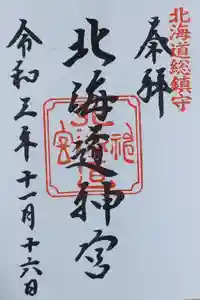 北海道総鎮守
奉拝
北海道神宮
令和三年十一月十六日
北海道神宮